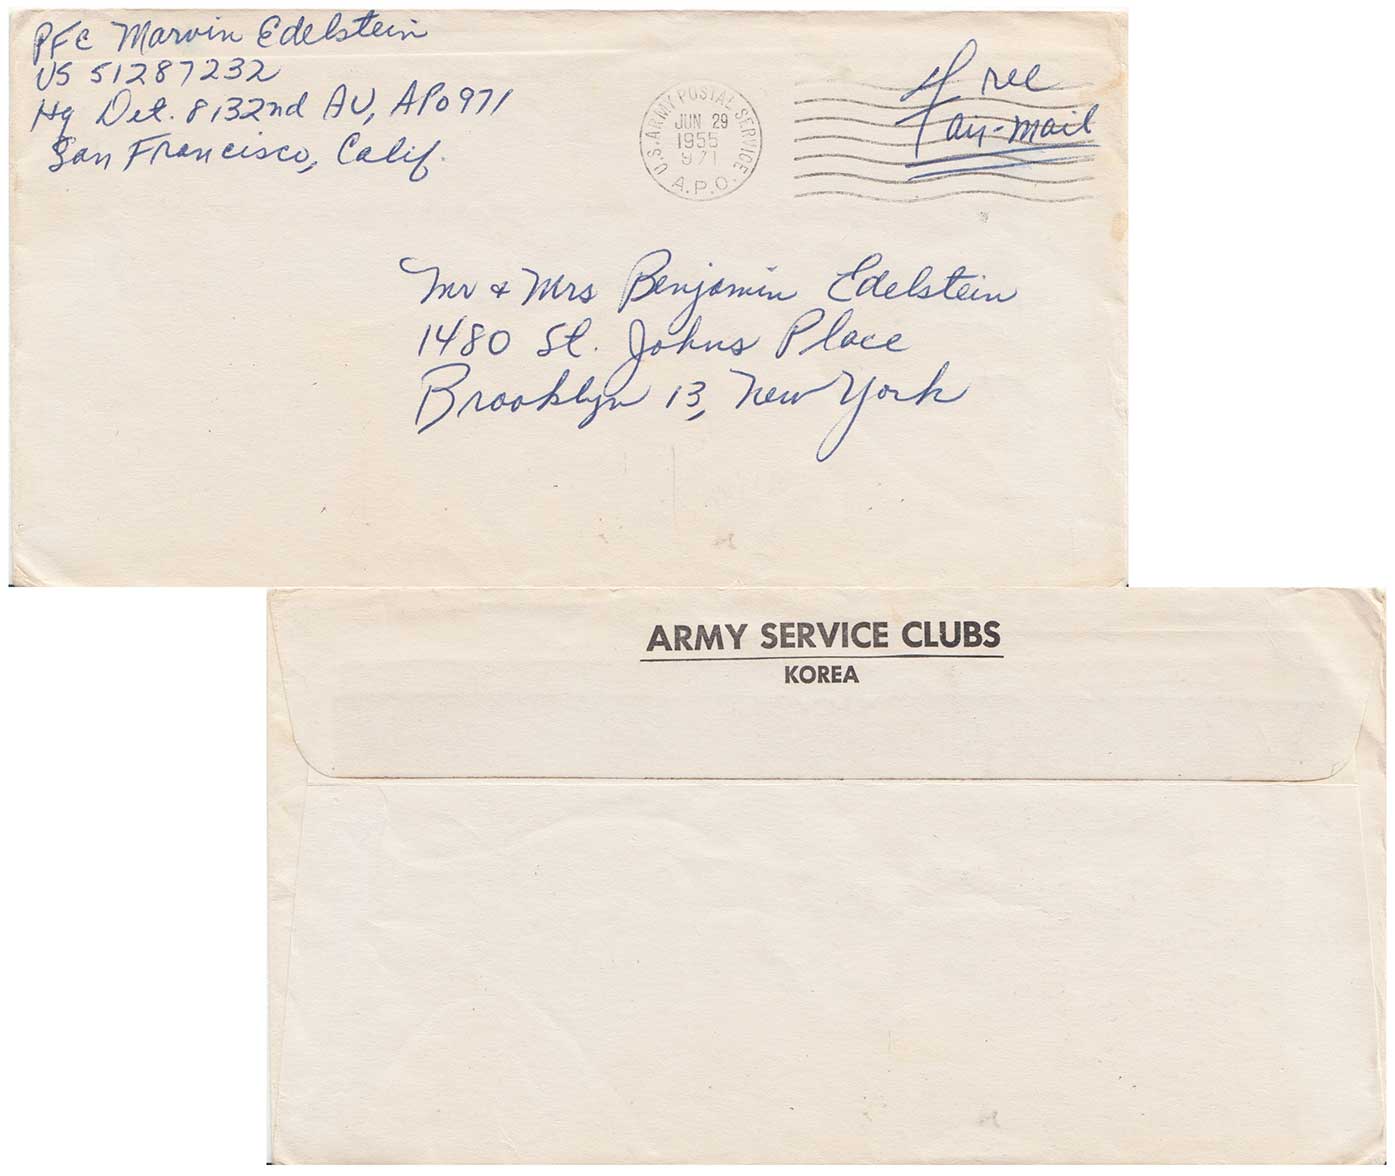 PFC Marvin Edelstein
US 51287232
Hq Det. 8132nd AU, APO 971
San Francisco, Calif.
U.S. ARMY POSTAL SERVICE
JUN 29
1955
971
A.P.O.
Free
air-mail
Mr & Mrs Benjamin Edelstein
1480 St. Johns Place
Brooklyn 13, New York
ARMY SERVICE CLUBS
KOREA